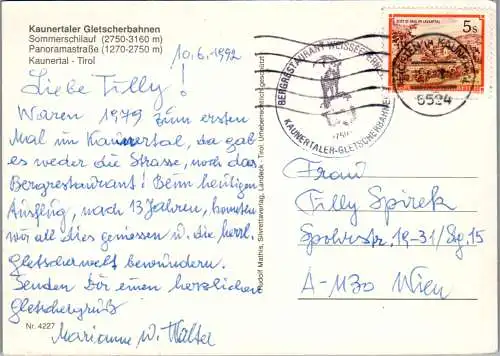 Kaunertaler Gletscherbahnen
Sommerschilauf (2750-3160 m)
Panoramastraße (1270-2750 m)
Kaunertal - Tirol
10.6.1992
Liebe Tilly!
Waren 1979 zum ersten
Mal im Kaunertal, da gab
es weder die Strasse, noch das
Bergrestaurant! Beim heutigen
Ausflug, nach 13 Jahren, konnten
wir all dies geniessen u. die herrl.
Gletscherwelt bewundern.
Senden Dir einen herzlichen
Gletschergruß
Marianne u. Walter
Nr. 4227
Rudolf Mathis, Silvrettaverlag, Landeck - Tirol. Urheberrechtlich geschützt
BERGRESTAURANT WEISSSEEFERNER
2750
KAUNERTALER-GLETSCHERBAHNEN
5s
6524
Frau
Tilly Spirek
19-31/Stg. 15
A-1170 Wien